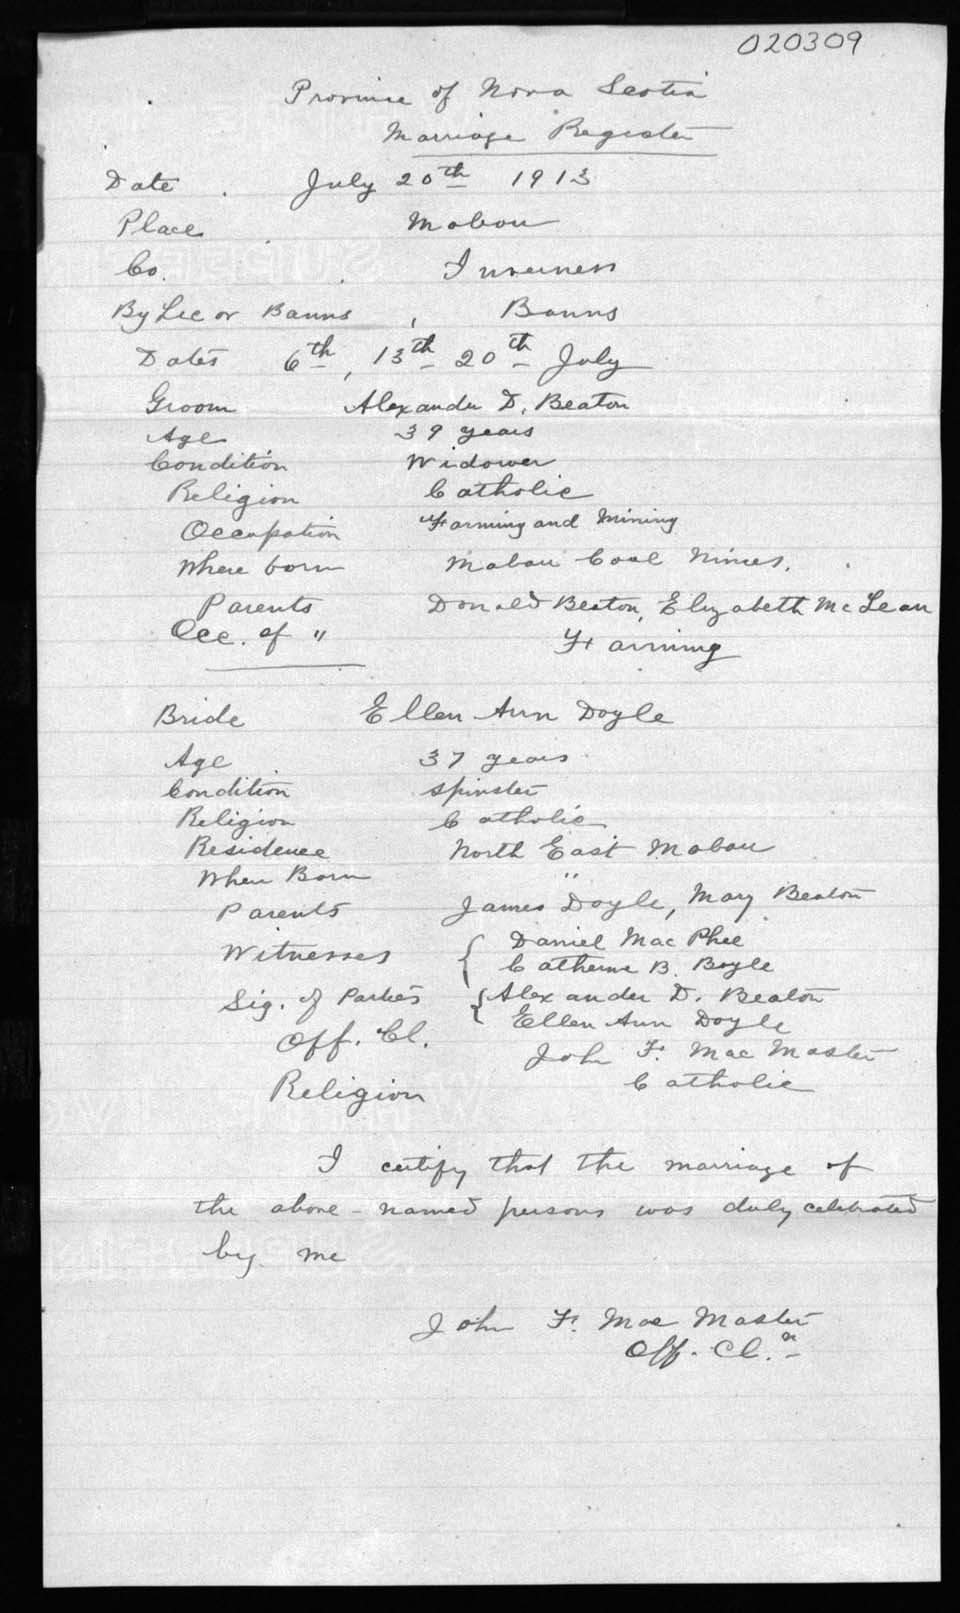 020309
Province of Nova Scotia
Marriage Register
Date July 20th 1913
Place Mabou
Co. Inverness
By Lic or Banns , Banns
Dates 6th, 13th 20th July
Groom Alexander D. Beaton
Age 39 years
Condition Widower
Religion Catholic
Occupation Farming and Mining
Where born Mabou Coal Mines.
Parents Donald Beaton, Elizabeth McLean
Occ. of " Farming
Bride Ellen Ann Doyle
Age 37 years
Condition Spinster
Religion Catholic
Residence North East Mabou
When Born "
Parents James Doyle, Mary Beaton
Witnesses { Daniel MacPhee
Catherine B. Boyle
Sig. of Parties { Alexander D. Beaton
Ellen Ann Doyle
Off. Cl. John F. MacMaster
Religion Catholic
I certify that the marriage of
the above-named persons was duly celebrated
by me
John F. MacMaster
Off. Cl.n